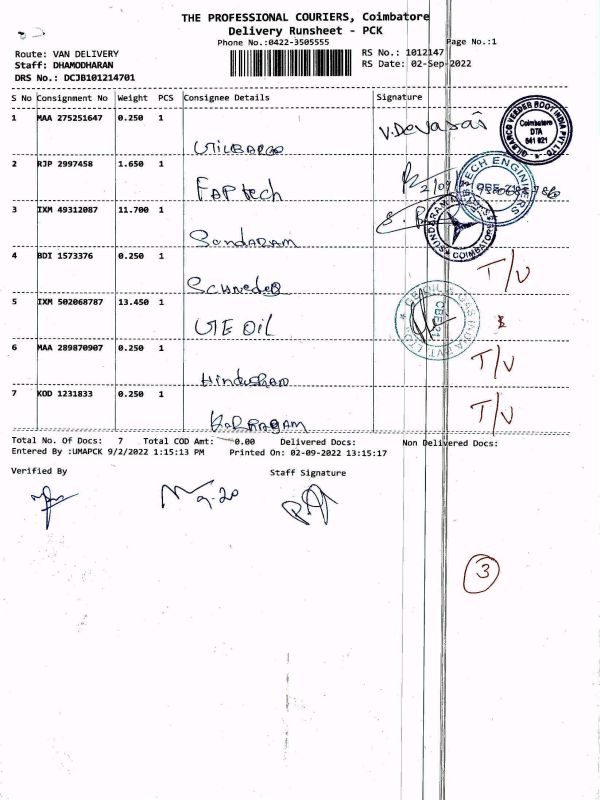 THE PROFESSIONAL COURIERS, Coimbatore
Delivery Runsheet - PCK
Phone No.:0422-3505555
Page No.:1
Route: VAN DELIVERY
RS No.: 1012147
Staff: DHAMODHARAN
RS Date: 02-Sep-2022
DRS No.: DCJB101214701
S No Consignment No Weight PCS Consignee Details Signature
1 MAA 275251647 0.250 1
V.Devasa
GILBARCO VEEDER ROOT INDIA PVT LTD
Coimbatore
DTA
641 021
GILBARCO
2 RJP 2997458 1.650 1
TECH ENGINEERS
FAP tech
3 IXM 49312087 11.700 1
SUNDARAM
COIMBATORE
Sundaram
4 BDI 1573376 0.250 1
T/V
Schneder
5 IXM 502068787 13.450 1
GE OIL & GAS INDIA PVT LTD
GE Oil
6 MAA 289870907 0.250 1
T/V
Hindusthan
7 KOD 1231833 0.250 1
T/V
Karpagam
Total No. Of Docs: 7 Total COD Amt: 0.00 Delivered Docs: Non Delivered Docs:
Entered By :UMAPCK 9/2/2022 1:15:13 PM Printed On: 02-09-2022 13:15:17
Verified By Staff Signature
9.20
3